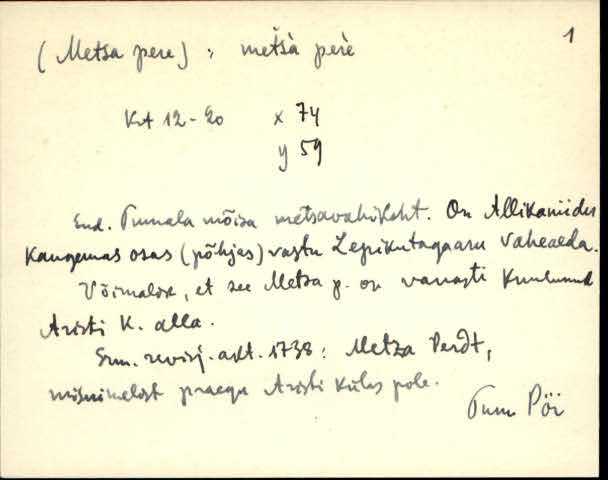 1
(Metsa pere) : metsà perè
Krt 12-20 x 74
y 59
End. Tumala mõisa metsavahikoht. On Allikaniidu
kaugemas osas (põhjas) vastu Lepikutagaaru vaheaeda.
Võimalik, et see Metsa p. on vanasti kuulunud
Aristi k. alla.
Srm. revisj. akt. 1738: Metza Perdt,
misnimelist praegu Aristi külas pole.
Pöi